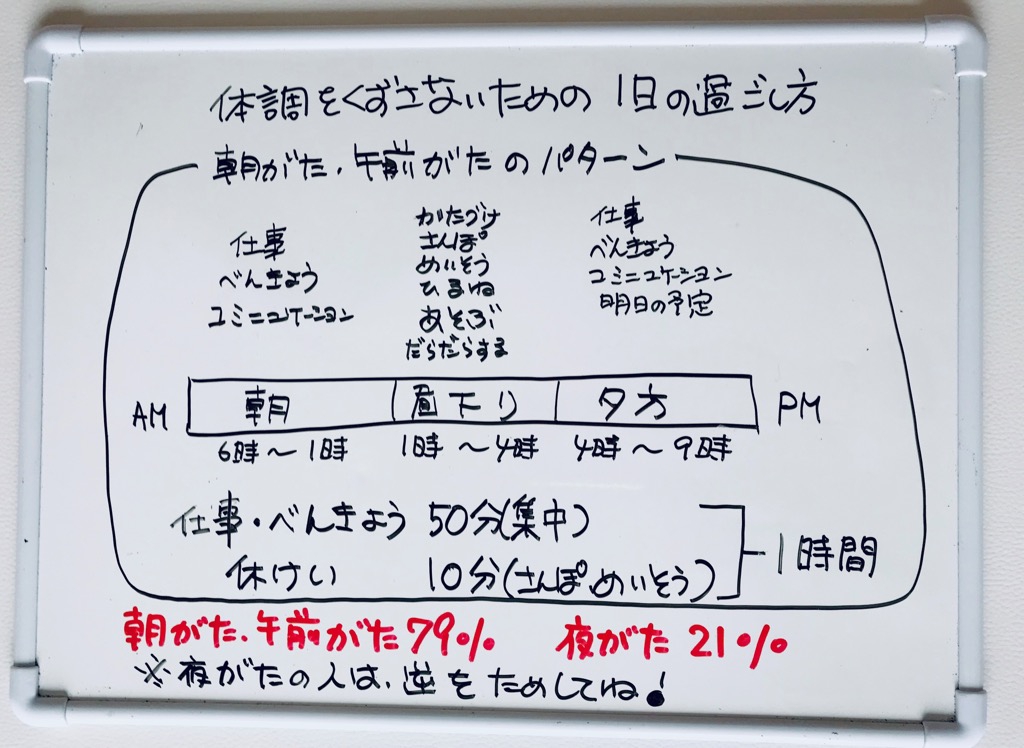 体調をくずさないための 1日の過ごし方
朝がた.午前がたのパターン
仕事
べんきょう
コミニュケーション
かたづけ
さんぽ
めいそう
ひるね
あそぶ
だらだらする
仕事
べんきょう
コミニュケーション
明日の予定
AM 朝 昼下り 夕方 PM
6時〜1時 1時〜4時 4時〜9時
仕事・べんきょう 50分(集中)
休けい 10分(さんぽ.めいそう)
1時間
朝がた.午前がた79% 夜がた 21%
※夜がたの人は、逆をためしてね!